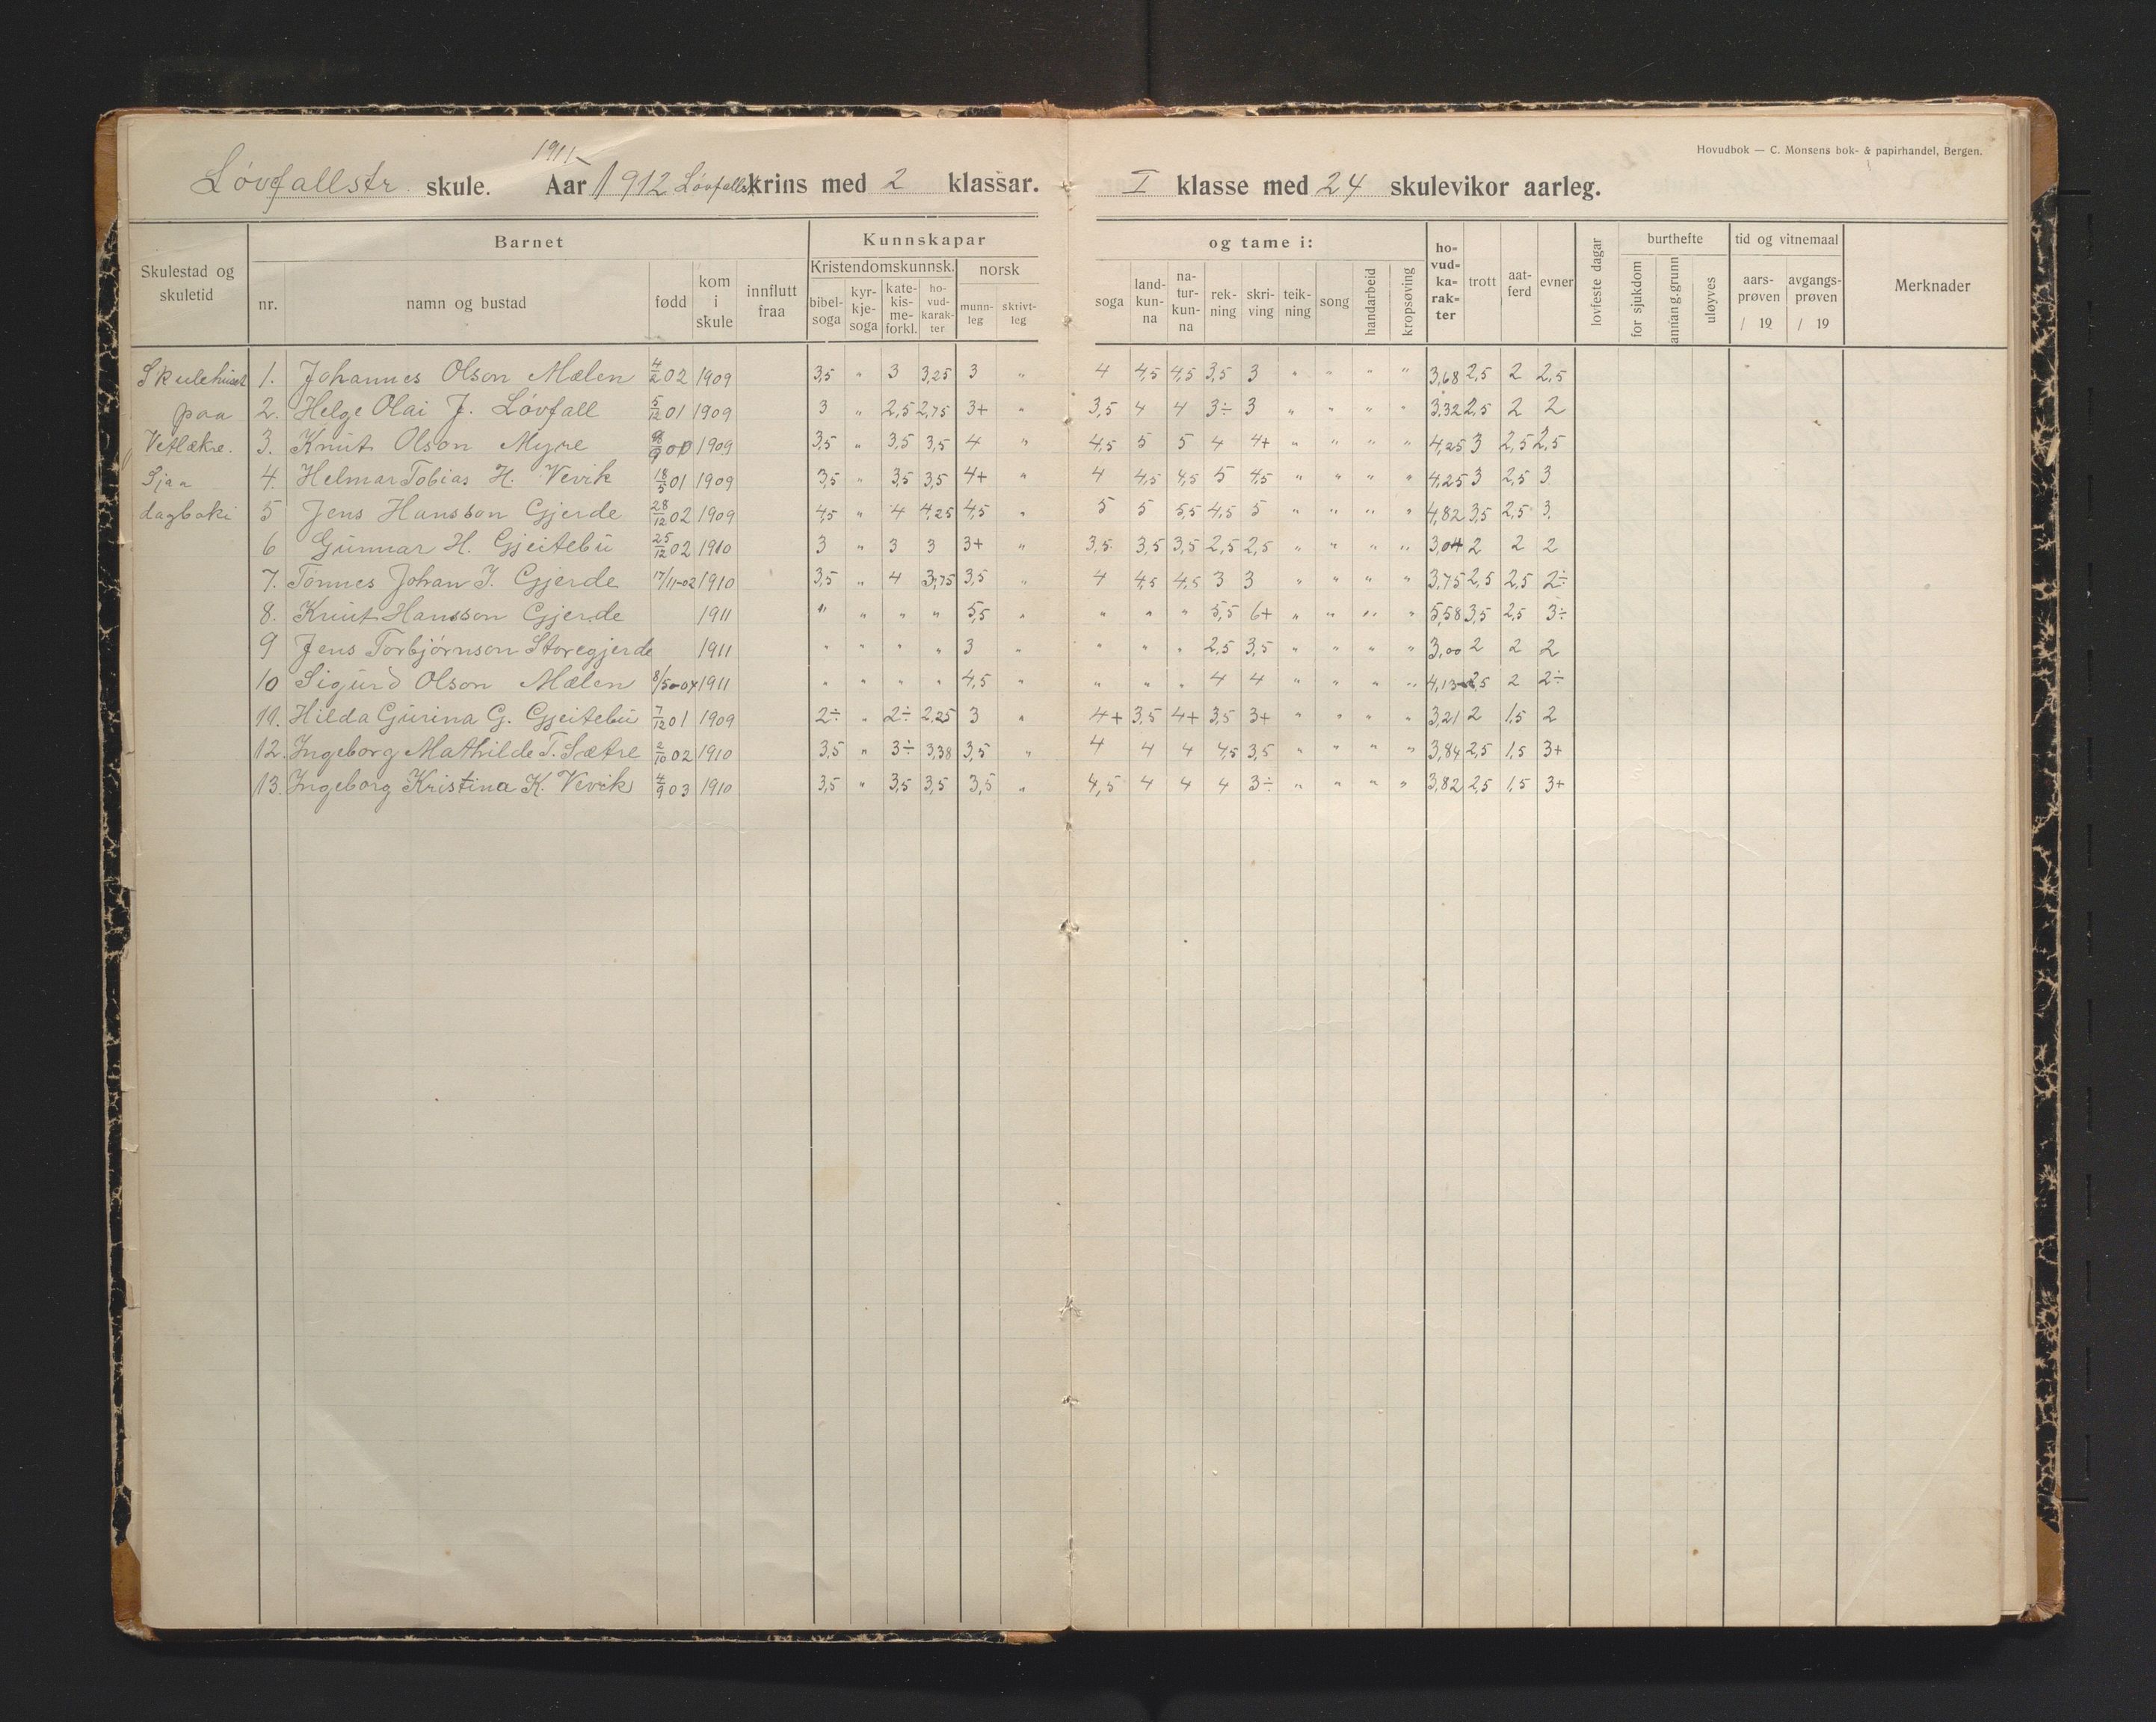 Hovudbok — C. Monsens bok- & papirhandel, Bergen.
1911-
Løvfallstr. skule. Aar 1912 Løvfalls krins med 2 klassar. I klasse med 24 skulevikor aarleg.
Skulestad og skuletid
Barnet
nr. namn og bustad født kom i skule innflutt fraa
Kunnskapar og tame i:
Kristendomskunnsk. norsk
bibel-soga kyr-kje-soga kate-kis-me-forkl. ho-vud-karak-ter munn-leg skrivt-leg
soga land-kun-na na-tur-kun-na rek-ning skri-ving teik-ning song handarbeid kropsøving
ho-vud-ka-rak-ter trott aat-ferd evner
lovfeste dagar
burthefte
for sjukdom annan g. grunn uløyves
tid og vitnemaal
aars-prøven / 19 avgangs-prøven / 19
Merknader
Skulehuset 1. Johannes Olson Mælen 4/2 02 1909 3,5 " 3 3,25 3 " 4 4,5 4,5 3,5 3 " " " " 3,68 2,5 2 2,5
paa 2. Helge Olai J. Løvfall 5/12 01 1909 3 " 2,5 2,75 3+ " 3,5 4 4 3÷ 3 " " " " 3,32 2,5 2 2
Vetlekre. 3. Knut Olson Myre 1909 3,5 " 3,5 3,5 4 " 4,5 5 5 4 4+ " " " " 4,25 3 2,5 2,5
Sjaa 4. Helmar Tobias H. Vevik 18/5 01 1909 3,5 " 3,5 3,5 4+ " 4 4,5 4,5 5 4,5 " " " " 4,25 3 2,5 3.
dagboki 5 Jens Hansson Gjerde 28/12 02 1909 4,5 " 4 4,25 4,5 " 5 5 5,5 4,5 5 " " " " 4,82 3,5 2,5 3.
6 Gunnar H. Gjeitebu 25/12 02 1910 3 " 3 3 3+ " 3,5 3,5 3,5 2,5 2,5 " " " " 3,04 2 2 2
7. Tønnes Johan J. Gjerde 17/11-02 1910 3,5 " 4 3,75 3,5 " 4 4,5 4,5 3 3 " " " " 3,75 2,5 2,5 2÷
8. Knut Hansson Gjerde 1911 " " " " 5,5 " " " " 5,5 6+ " " " " 5,58 3,5 2,5 3÷
9 Jens Torbjørnson Storegjerde 1911 " " " " 3 " " " " 2,5 3,5 " " " " 3,00 2 2 2
10 Sigurd Olson Mælen 8/5-04 1911 " " " " 4,5 " " " " 4 4 " " " " 4,13 2,5 2 2÷
11. Hilda Gurina G. Gjeitebu 7/12 01 1909 2÷ " 2÷ 2,25 3 " 4+ 3,5 4+ 3,5 3+ " " " " 3,21 2 1,5 2
12. Ingeborg Mathilde T. Sætre 2/10 02 1910 3,5 " 3÷ 3,38 3,5 " 4 4 4 4,5 3,5 " " " " 3,84 2,5 1,5 3+
13. Ingeborg Kristina K. Vevik 4/9 03 1910 3,5 " 3,5 3,5 3,5 " 4,5 4 4 4 3÷ " " " " 3,82 2,5 1,5 3+